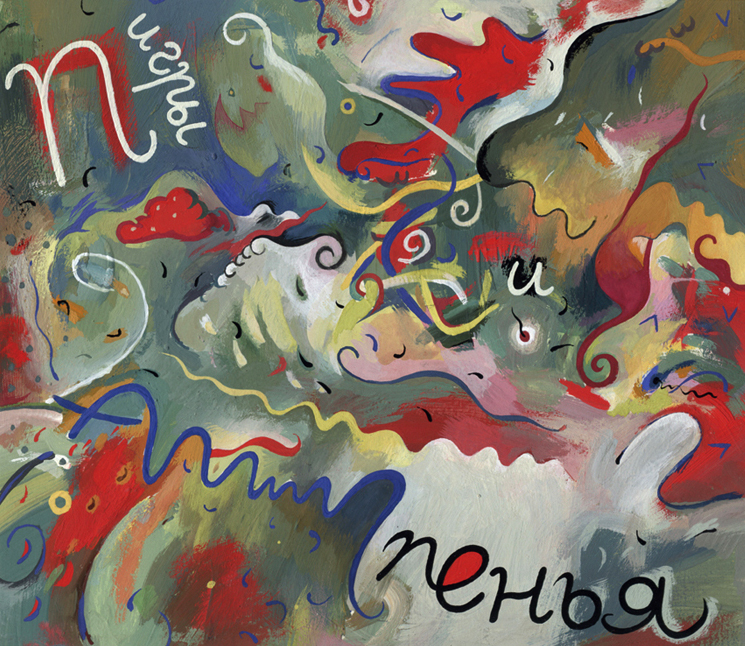 П игры
и
пенья